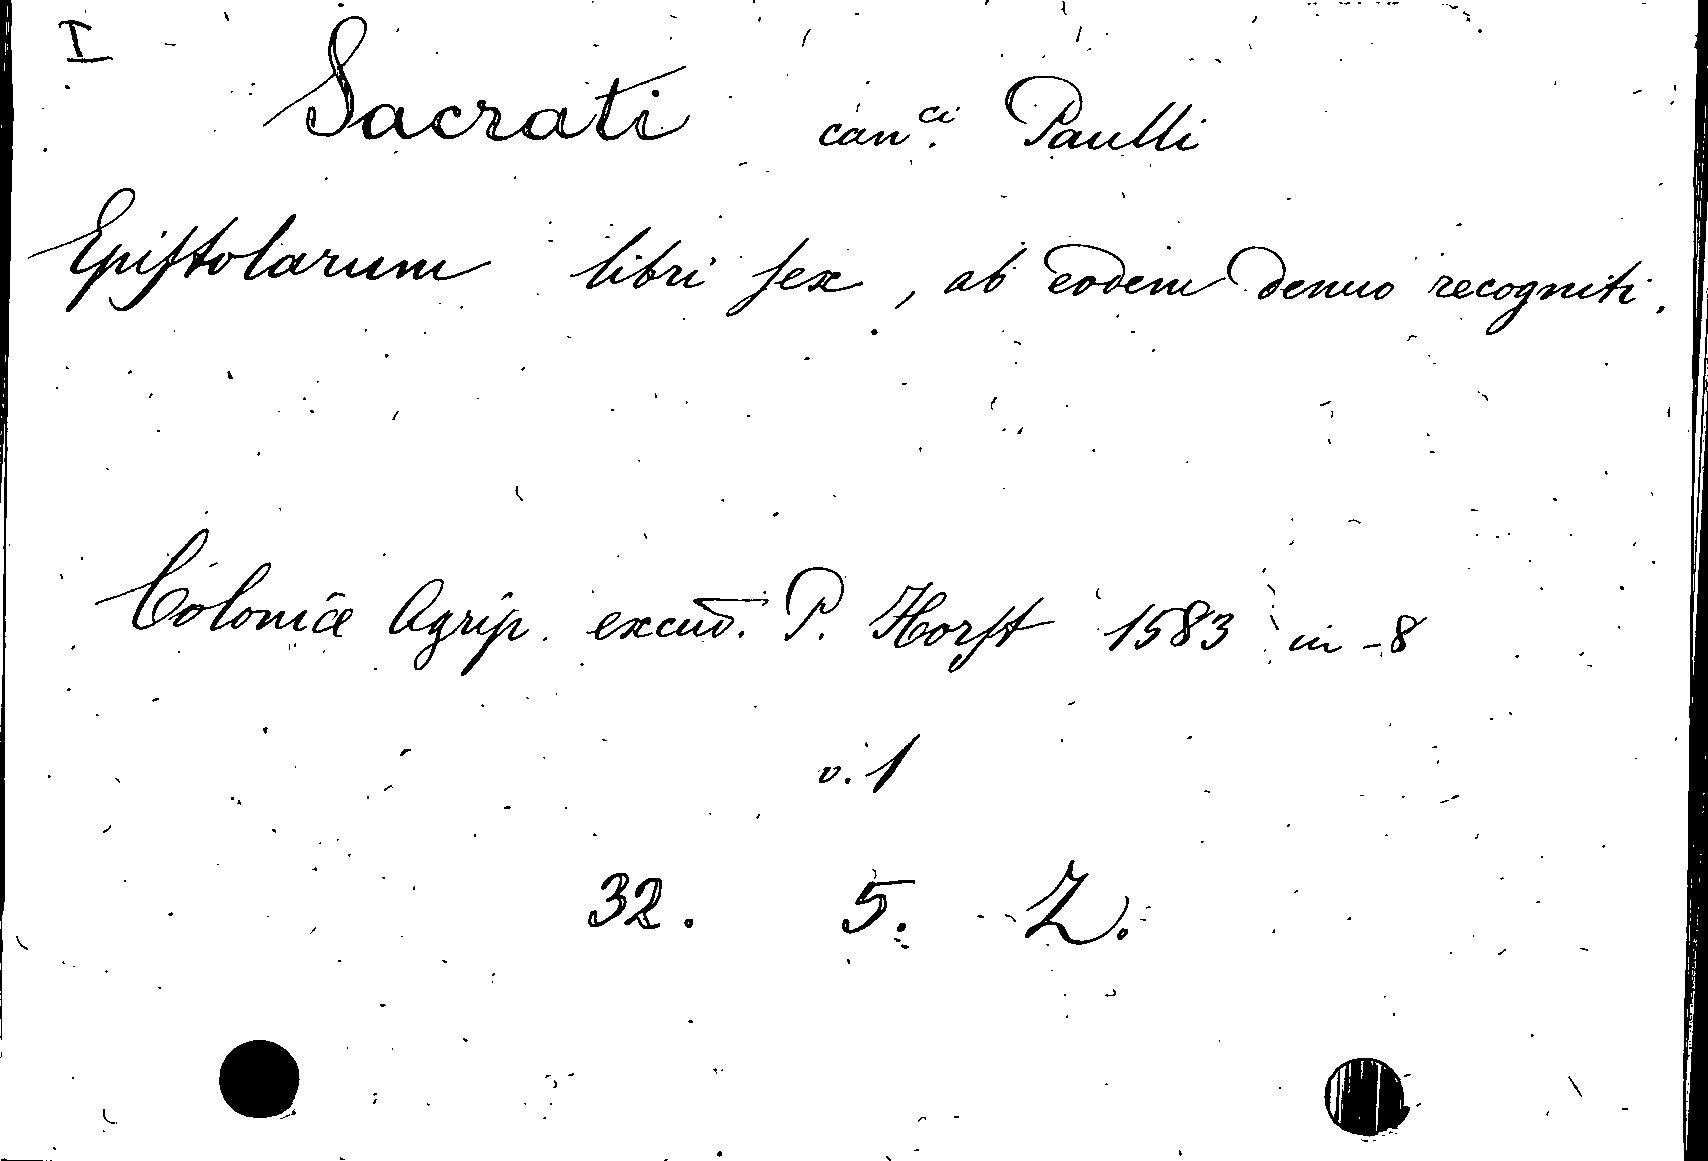 I
Sacrati can.ci Paulli
Epistolarum libri sex, ab eodem denuo recogniti.
Coloniæ Agrip. excud. P. Horst 1583 in-8
v. 1
32. 5. Z.